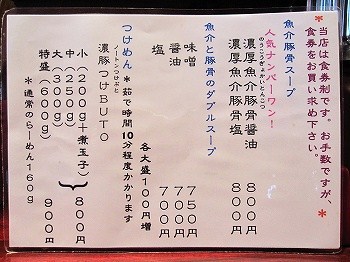 ＊当店は食券制です。お手数ですが、
食券をお買い求め下さい。＊
魚介豚骨スープ
人気ナンバーワン！
のうこうぎょかいとんこつ
濃厚魚介豚骨醤油　８００円
濃厚魚介豚骨塩　８００円
魚介と豚骨のダブルスープ
味噌　７５０円
醤油　７００円
塩　７００円
各大盛１００円増
つけめん　＊茹で時間１０分程度かかります
ノートンつけぶと
濃豚つけＢＵＴＯ
小（２００ｇ＋煮玉子）
中（２５０ｇ）
８００円
大（３００ｇ）
特盛（６００ｇ）　９００円
＊通常のらーめん１６０ｇ